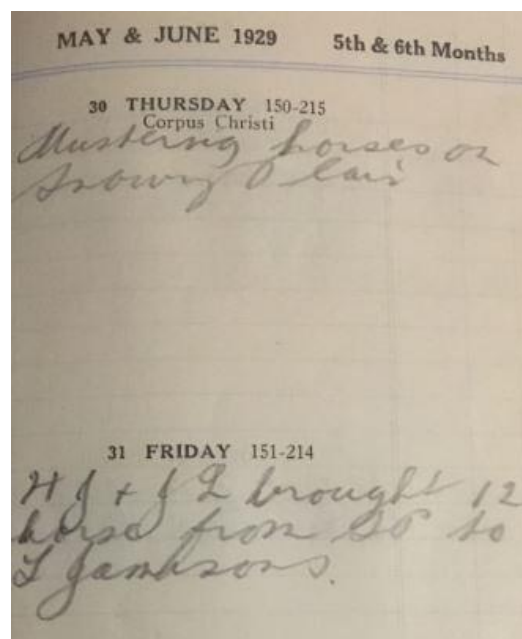 MAY & JUNE 1929 5th & 6th Months
30 THURSDAY 150-215
Corpus Christi
Mustering horses on
Snowy Plain
31 FRIDAY 151-214
H J + J L brought 12
horse from SP to
L Jamksons.